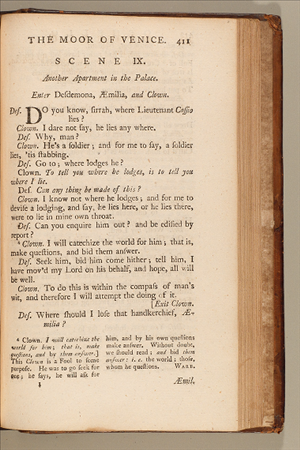 THE MOOR OF VENICE. 411
SCENE IX.
Another Apartment in the Palace.
Enter Desdemona, Æmilia, and Clown.
Des. DO you know, sirrah, where Lieutenant Cassio
lies?
Clown. I dare not say, he lies any where.
Des. Why, man?
Clown. He's a soldier; and for me to say, a soldier
lies, 'tis stabbing.
Des. Go to; where lodges he?
Clown. To tell you where he lodges, is to tell you
where I lie.
Des. Can any thing be made of this?
Clown. I know not where he lodges; and for me to
devise a lodging, and say, he lies here, or he lies there,
were to lie in mine own throat.
Des. Can you enquire him out? and be edified by
report?
⁴ Clown. I will catechize the world for him; that is,
make questions, and bid them answer.
Des. Seek him, bid him come hither; tell him, I
have mov'd my Lord on his behalf, and hope, all will
be well.
Clown. To do this is within the compass of man's
wit, and therefore I will attempt the doing of it.
[Exit Clown.
Des. Where should I lose that handkerchief, Æ-
milia?
⁴ Clown. I will catechize the
world for him; that is, make
questions, and by them answer.]
This Clown is a Fool to some
purpose. He was to go seek for
one; he says, he will ask for
him, and by his own questions
make answer. Without doubt,
we should read; and bid them
answer: i. e. the world; those,
whom he questions. WARB.
Æmil.